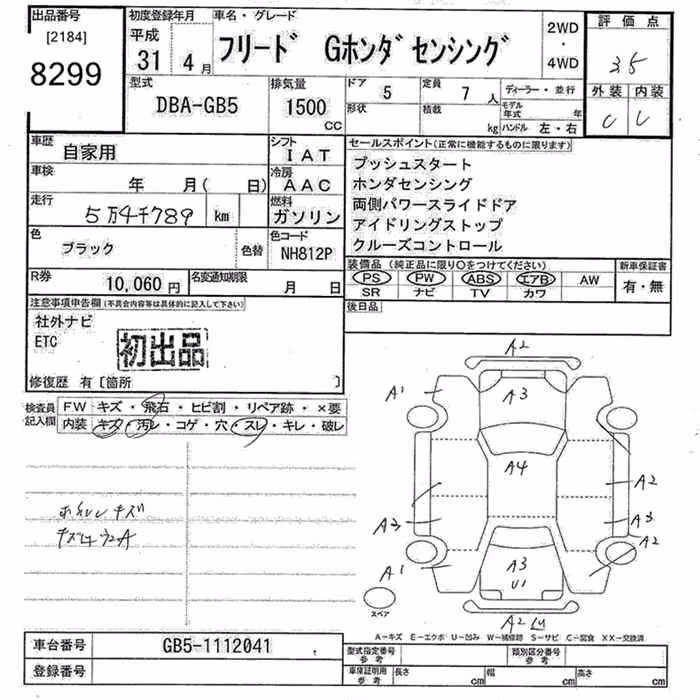 出品番号 初度登録年月 車名・グレード 評価点
[2184] 平成 2WD
8299 31年 4月 フリード Gホンダセンシング ・ 35
4WD
外装 内装
C C
型式 排気量 ドア 定員 ディーラー・並行
DBA-GB5 1500 CC 5 7人 モデル年式 年
形状 積載 kg ハンドル 左・右
車歴 自家用 シフト IAT
車検 年 月( 日) 冷房 AAC
走行 5万4千789 km 燃料 ガソリン
色 ブラック 色替 色コード NH812P
R券 10,060円 名変通知期限 月 日
セールスポイント(正常に機能するものに限ります)
プッシュスタート
ホンダセンシング
両側パワースライドドア
アイドリングストップ
クルーズコントロール
装備品(純正品に限り○をつけてください) 新車保証書
PS PW ABS エアB AW 有・無
SR ナビ TV カワ
後日品
注意事項申告欄(不具合内容等は具体的に記入して下さい)
社外ナビ
ETC
初出品
修復歴 有〔箇所 〕
検査員記入欄 FW キズ・飛石・ヒビ割・リペア跡・×要
内装 キズ・汚レ・コゲ・穴・スレ・キレ・破レ
A2
A1 A3
A4 A2
A3 A3
A2
A1 A3
U1
スペア
A2
A−キズ E−エクボ U−凹み W−補修跡 S−サビ C−腐食 XX−交換済
車台番号 GB5-1112041
登録番号
型式指定番号 参考 類別区分番号 参考
車庫証明用 参考 長さ cm 幅 cm 高さ cm